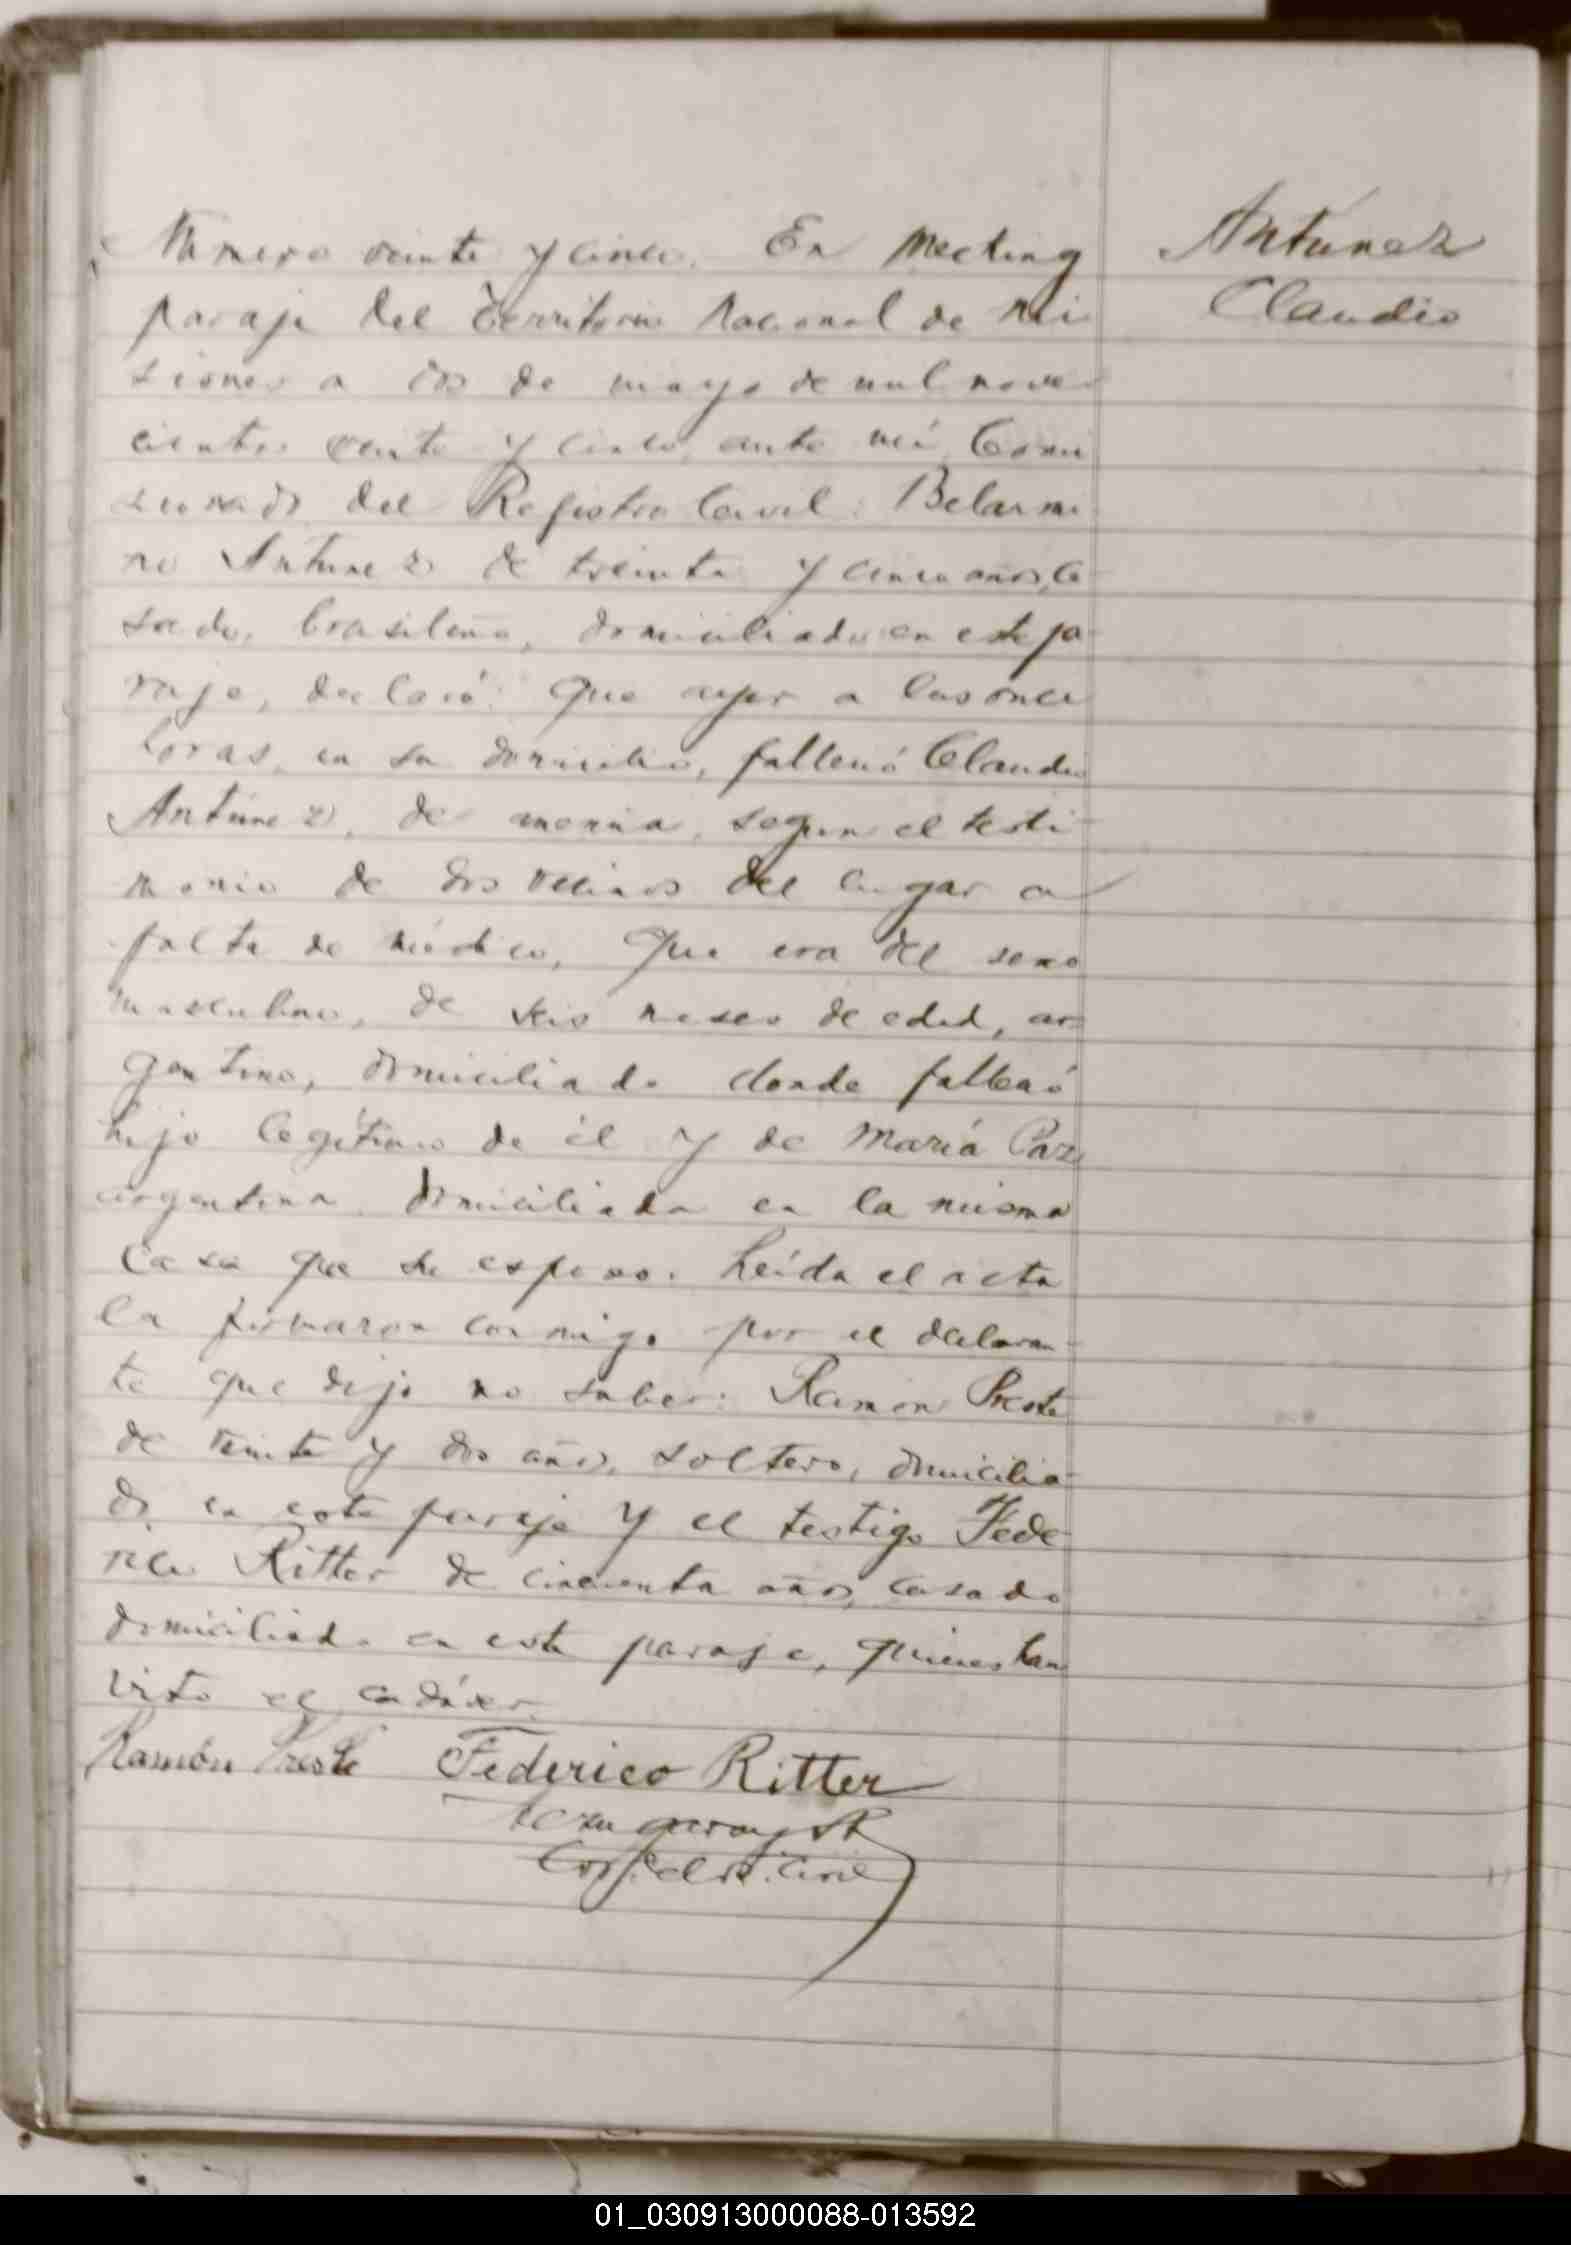 Número veinte y cinco. En Mecking
Antúnez
Claudio
paraje del Territorio Nacional de Mi
siones a dos de mayo de mil nove-
cientos veinte y cinco, ante mí, Comi
sionado del Registro Civil: Belarmi
no Antunez de treinta y cinco años, ca-
sado, brasileño, domiciliado en este pa-
raje, declaró: Que ayer a las once
horas, en su domicilio, falleció Claudio
Antúnez, de anemia, segun el testi-
monio de dos vecinos del lugar a
falta de médico, que era del sexo
masculino, de seis meses de edad, ar-
gentino, domiciliado donde falleció
hijo legítimo de él y de María Paz
argentina domiciliada en la misma
casa que su esposo. Leída el acta
la firmaron conmigo por el declaran-
te que dijo no saber: Ramon Preste
de veinte y dos años, soltero, domicilia-
do en este paraje y el testigo Fede-
rico Ritter de cincuenta años, casado
domiciliado en este paraje, quienes han
visto el cadáver.
Ramón Preste Federico Ritter
Civil
01_030913000088-013592